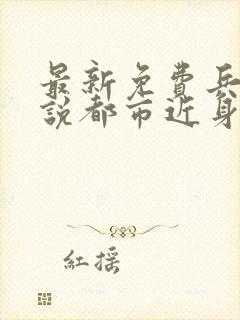 最新免費兵
説都市近身
紅摇